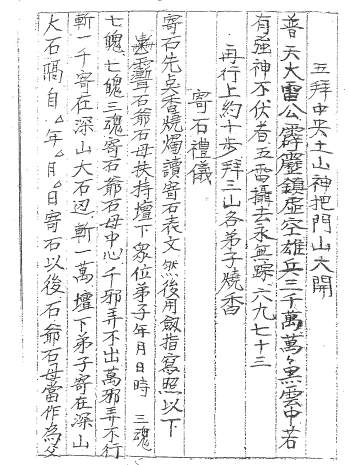 五拜中央土山神把門山大開
普天大雷公霹靂鎮虛空雄兵三千萬萬々黑雲中若
有強神不伏者五雷攝去永無踪六九七十三
再行上約十步拜三山各弟子燒香
寄石禮儀
寄石先点香燒燭讀寄石表文然後用劍指寫照以下
靈石爺石母扶持壇下眾位弟子年月日時 三魂
七魄七魄三魂寄石爺石母中心千邪弄不出萬邪弄不行
斬一千寄在深山大石边斬一萬壇下弟子寄在深山
大石隔自△年△月△日寄石以後石爺石母當作為父